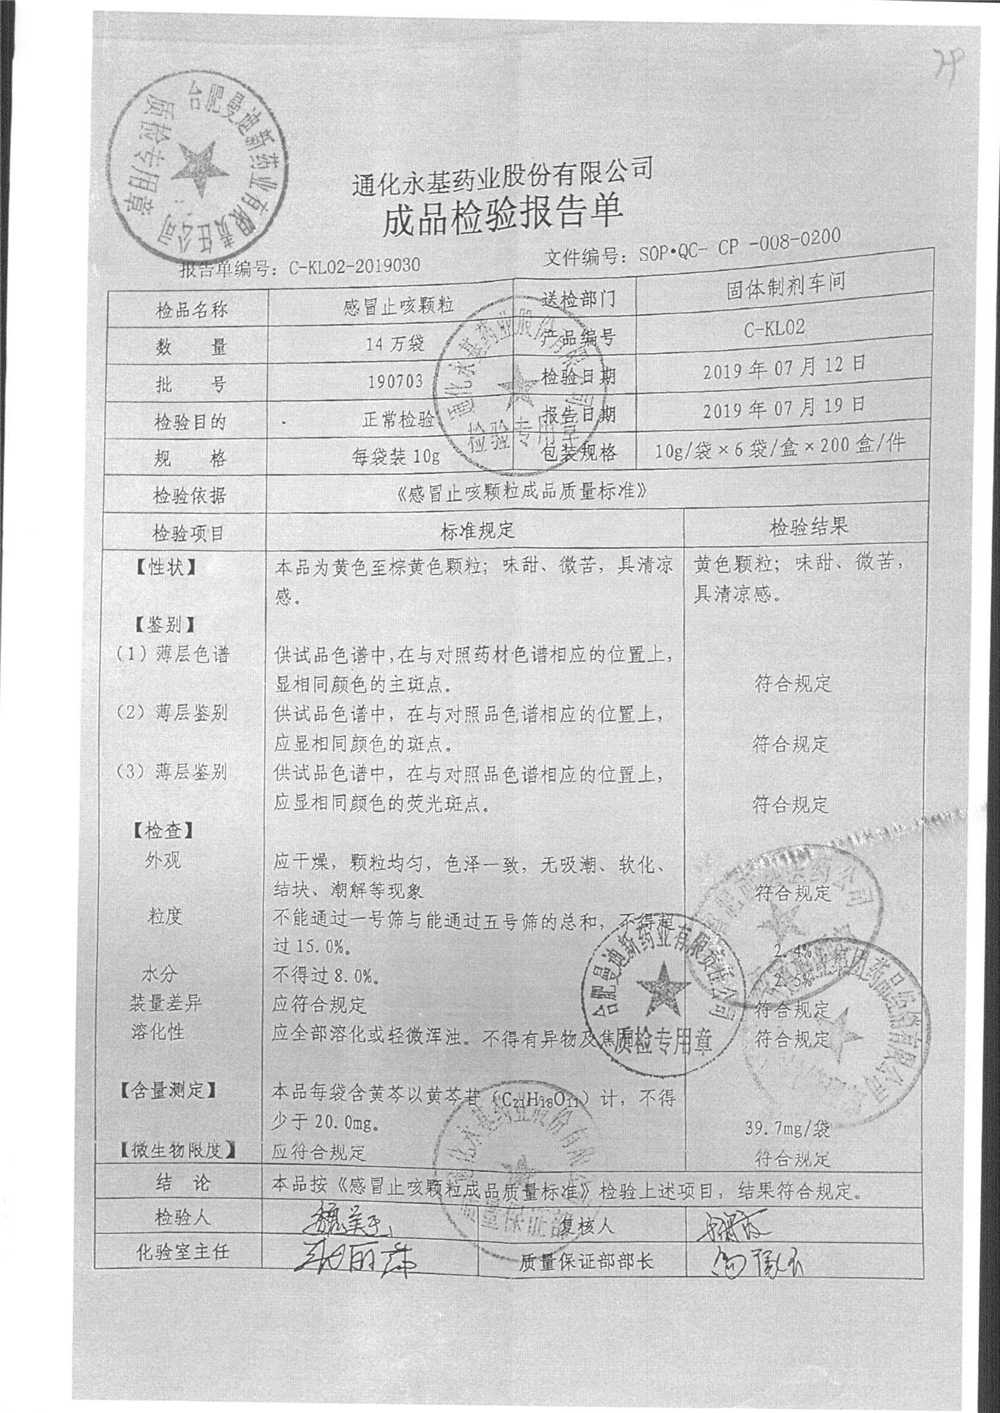 合肥曼迪新药业有限责任公司
质检专用章
通化永基药业股份有限公司
成品检验报告单
报告单编号：C-KL02-2019030 文件编号：SOP·QC- CP -008-0200
检品名称 感冒止咳颗粒 送检部门 固体制剂车间
数 量 14万袋 产品编号 C-KL02
批 号 190703 检验日期 2019年07月12日
检验目的 正常检验 报告日期 2019年07月19日
规 格 每袋装10g 包装规格 10g/袋×6袋/盒×200盒/件
通化永基药业股份有限公司
检验专用章
检验依据 《感冒止咳颗粒成品质量标准》
检验项目 标准规定 检验结果
【性状】 本品为黄色至棕黄色颗粒；味甜、微苦，具清凉 黄色颗粒；味甜、微苦，
感。 具清凉感。
【鉴别】
（1）薄层色谱 供试品色谱中，在与对照药材色谱相应的位置上，
显相同颜色的主斑点。 符合规定
（2）薄层鉴别 供试品色谱中，在与对照品色谱相应的位置上，
应显相同颜色的斑点。 符合规定
（3）薄层鉴别 供试品色谱中，在与对照品色谱相应的位置上，
应显相同颜色的荧光斑点。 符合规定
【检查】
外观 应干燥，颗粒均匀，色泽一致，无吸潮、软化、
结块、潮解等现象 符合规定
粒度 不能通过一号筛与能通过五号筛的总和，不得超
过15.0%。 2.4%
水分 不得过8.0%。
装量差异 应符合规定 符合规定
溶化性 应全部溶化或轻微浑浊。不得有异物及焦屑 符合规定
合肥曼迪新药业有限责任公司
质检专用章
【含量测定】 本品每袋含黄芩以黄芩苷（C₂₁H₁₈O₁₁）计，不得
少于20.0mg。 39.7mg/袋
【微生物限度】 应符合规定 符合规定
结 论 本品按《感冒止咳颗粒成品质量标准》检验上述项目，结果符合规定。
检验人 复核人
化验室主任 质量保证部部长
通化永基药业股份有限公司
质量保证部